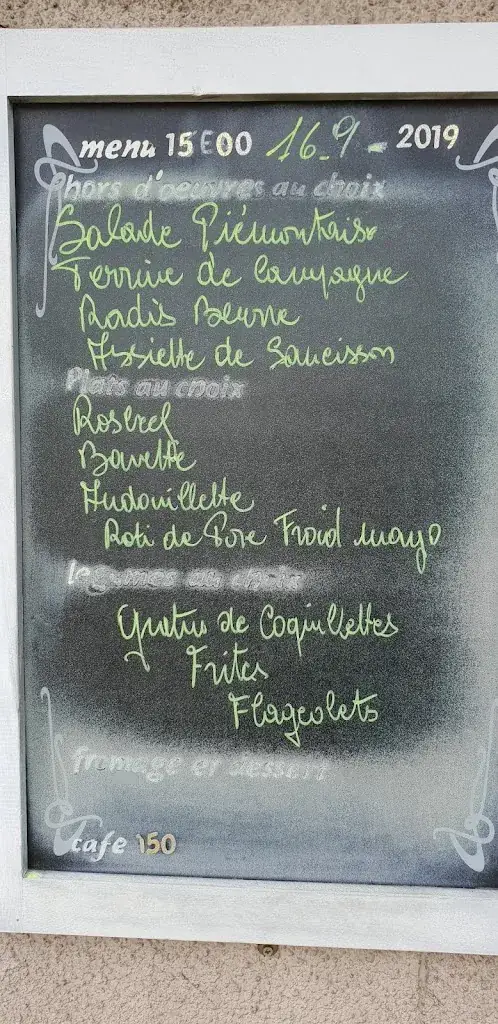 menu 15E00 16_9_ 2019
hors d'oeuvres au choix
Salade Piémontaise
Terrine de Campagne
Radis Beurre
Assiette de Saucisson
Plats au choix
Rosbeef
Bavette
Andouillette
Roti de Porc Froid mayo
legumes au choix
Gratin de Coquillettes
Frites
Flageolets
fromage et dessert
cafe 150